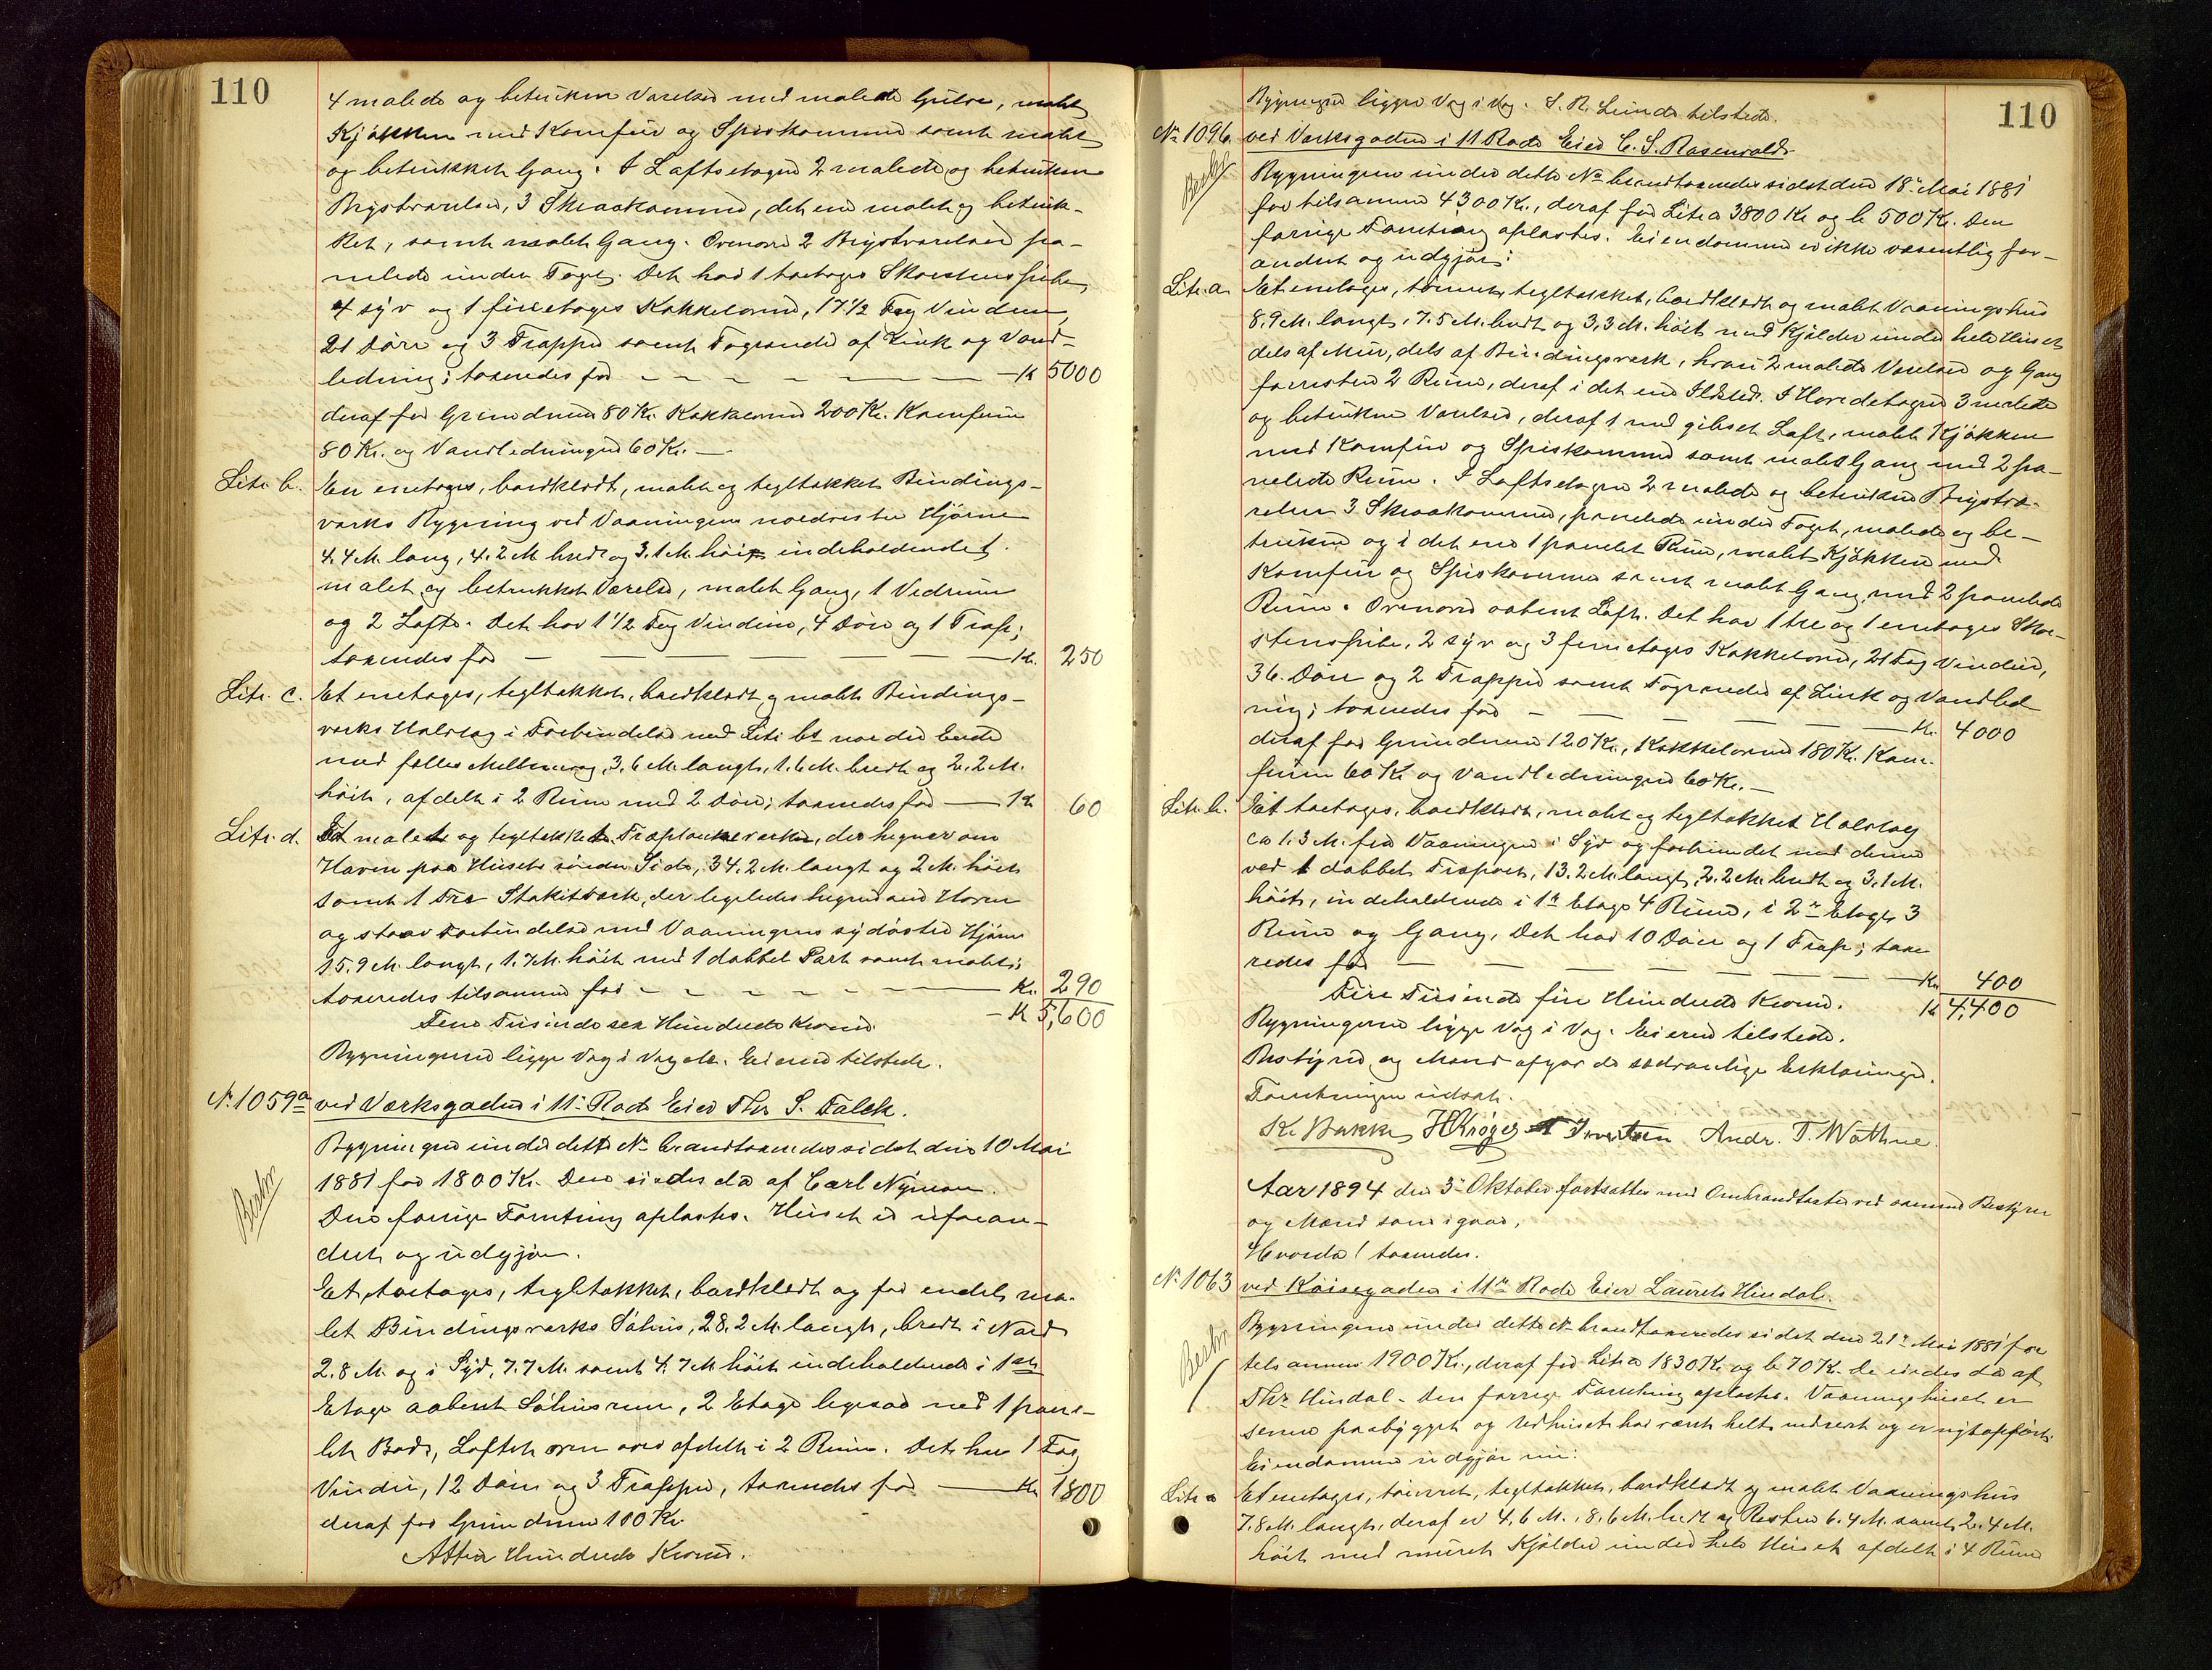 110
4 malede og betrukne Værelser med malede Gulve, malet
Kjøkken med Komfur og Spiskammer samt malet
og betrukket Gang. I Loftsetagen 2 malede og betrukne
Brystværelser, 3 Skraakammer, det ene malet og betruk-
ket, samt malet Gang. Ovenover 2 Brystværelser pa-
nelede under Taget. Det har 1 toetages Skorstenspibe,
4 syv og 1 fireetages Kakkelovne, 17 1/2 Fag Vinduer,
21 Døre og 3 Trapper samt Tagrender af Zink og Vand-
ledning; taxeredes for — Kr 5000
deraf for Grundmur 80 Kr. Kakkelovne 200 Kr. Komfuren
80 Kr. og Vandledningen 60 Kr. —
Litr. b. En enetages, bordklædt, malet og tegltækket Bindings-
værks Bygning ved Vaaningens nordvestre Hjørne
4.4 M. lang, 4.2 M. bred og 3.1 M. høi, indeholdende 1
malet og betrukket Værelse, malet Gang, 1 Vedrum
og 2 Lofter. Det har 1 1/2 Fag Vinduer, 4 Døre og 1 Trap;
taxeredes for — Kr. 250
Litr. c. Et enetages, tegltækket, bordklædt og malet Bindings-
værks Halvtag i Forbindelse med Litr. bs nordre Ende
med fælles Mellemvæg, 3,6 M. langt, 1.6 M. bredt og 2.2 M.
høit, afdelt i 2 Rum med 2 Døre; taxeredes for — Kr 60
Litr. d. Et malet og tegltækket Træplankeværk, der hegner om
Haven paa Husets søndre Side, 34.2 M. langt og 2 M. høit
samt 1 Træ Stakitværk, der ligeledes hegner om Haven
og staar Forbindelse med Vaaningens sydøstre Hjørne
15.9 M. langt, 1.7 M. høit med 1 dobbel Port samt malet;
taxeredes tilsammen for — Kr. 290
Fem Tusinde sex Hundrede Kroner. — Kr 5,600
Bygningerne ligge Væg i Væg etc. Eieren tilstede.
No. 1059a ved Værksgaden i 11te Rode Eier Thr S. Falck.
Bestr
Bygningen under dette No brandtaxeredes sidst den 10 Mai
1881 for 1800 Kr. Den eiedes da af Carl Nyman.
Den forrige Forretning oplæstes. Huset er uforan-
dret og udgjør.
Et, toetages, tegltækket, bordklædt og for endel ma-
let Bindingsværks Søhus, 28.2 M. langt, bredt i Nord
2.8 M. og i Syd, 7.7 M. samt 4.7 M. høit indeholdende i 1ste
Etage aabent Søhusrum, 2 Etage ligesaa med 1 pane-
let Bod, Loftet oven over afdelt i 2 Rum. Det har 1 Fag
Vinduer, 12 Døre og 3 Trapper, taxeredes for — Kr 1800
deraf for Grundmur 100 Kr.
Atten Hundrede Kroner.
110
Bygningen ligger Væg i Væg. S. R. Lunde tilstede.
No 1096. ved Værksgaden i 11 Rode Eier C. S. Rosenvald.
Bestr
Bygningerne under dette No brandtaxeredes sidst den 18de Mai 1881
for tilsammen 4300 Kr., deraf for Litr. a 3800 Kr og b 500 Kr. Den
forrige Forretning oplæstes. Eiendommen er ikke væsentlig for-
andret og udgjør:
Litr. a. Et enetages, tømret, tegltækket, bordklædt og malet Vaaningshus
8.9 M. langt, 7.5 M. bredt og 3,3 M. høit med Kjælder under hele Huset
dels af Mur, dels af Bindingsværk, hvori 2 malede Værelser og Gang
forresten 2 Rum, deraf i det ene Ildsted. I Hovedetagen 3 malede
og betrukne Værelser, deraf 1 med gibset Loft, malet Kjøkken
med Komfur og Spiskammer samt malet Gang med 2 pa-
nelede Rum. I Loftsetagen 2 malede og betrukne Brystvæ-
relser 3 Skraakammer, panelede under Taget, malede og be-
trukne og i det ene 1 panelet Rum, malet Kjøkken med
Komfur og Spiskammer samt malet Gang med 2 panelede
Rum. Ovenover aabent Loft. Det har 1 tre og 1 enetages Skor-
stenspibe, 2 syv og 3 fireetages Kakkelovne, 21 Fag Vinduer,
36. Døre og 2 Trapper samt Tagrender af Zink og Vandled
ning; taxeredes for — Kr. 4000
deraf for Grundmur 120 Kr., Kakkelovne 180 Kr. Kom-
furene 60 Kr og Vandledningen 60 Kr. —
Litr. b. Et toetages, bordklædt, malet og tegltækket Halvtag
ca 1.3 M. fra Vaaningen i Syd og forbundet med denne
ved 1 dobbelt Træport, 13.2 M. langt, 2.2 M. bredt og 3.1 M.
høit, indeholdende i 1te Etage 4 Rum, i 2den Etage 3
Rum og Gang, Det har 10 Døre og 1 Trap; taxe
redes for — Kr 400
Fire Tusinde fire Hundrede Kroner. Kr 4,400
Bygningerne ligge Væg i Væg. Eieren tilstede.
Bestyrer og Mænd afgav de sædvanlige Erklæringer.
Forretningen udsat.
K. Bakke HKrøger T Ivertsen Andr. T. Wathne.
Aar 1894 den 3die Oktober fortsattes med Ombrandtaxter ved samme Bestyrer
og Mænd som igaar.
Hvorda! taxeredes.
No. 1063 ved Kaisegaden i 11te Rode Eier Laurits Hindal.
Bestr
Bygningerne under dette No brandtaxeredes sidst den 21de Mai 1881 for
tilsammen 1900 Kr., deraf for Litr a 1830 Kr og b 70 Kr. De eiedes da af
Thr. Hindal. Den forrige Forretning oplæstes. Vaaningshuset er
senere paabygget og Vedhuset har været helt nedrevet og er nyt opført.
Eiendommen udgjør nu:
Litr. a Et enetages, tømret, tegltækket, bordklædt og malet Vaaningshus
7.8 M. langt, deraf er 4.6 M., 8.6 M. bredt og Resten 6.4 M. samt 2.4 M.
høit med muret Kjælder under hele Huset afdelt i 4 Rum